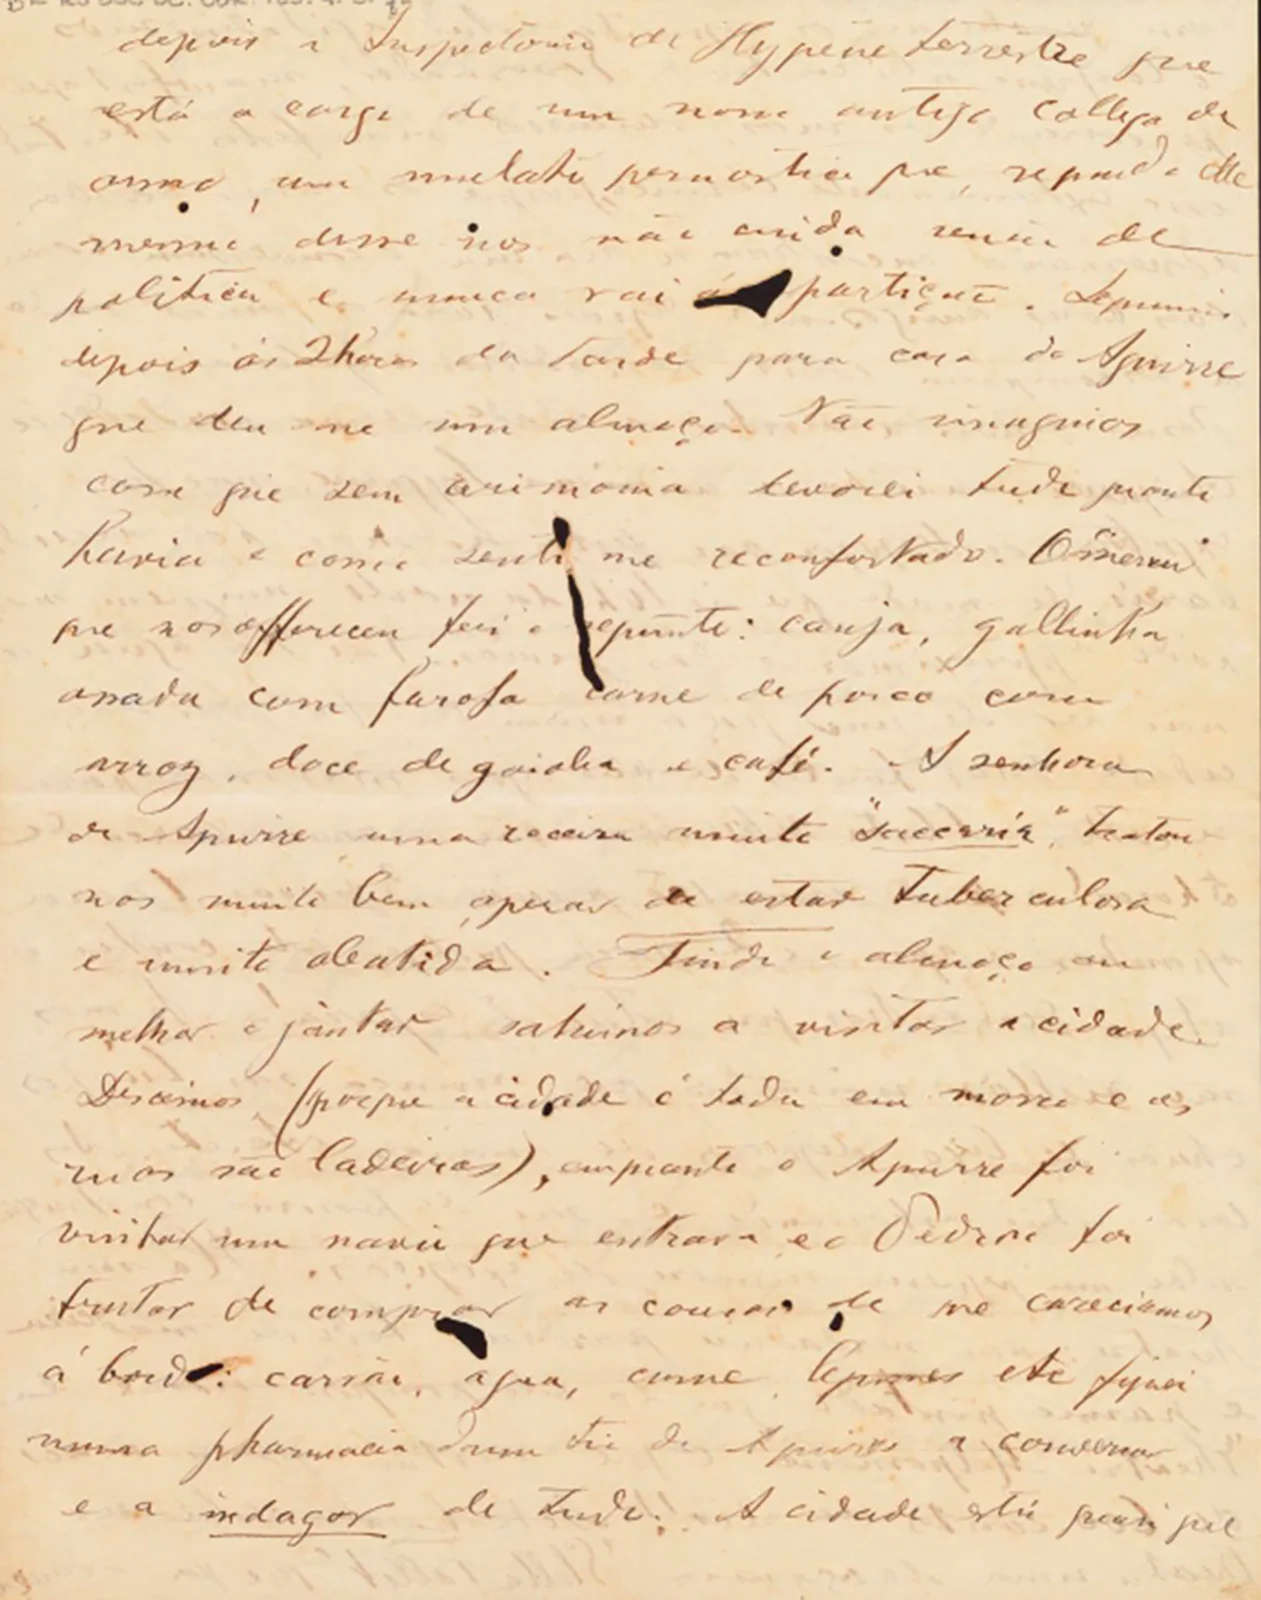 depois a Inspectoria de Hygiene terrestre que
está a cargo de um nosso antigo collega de
anno, um mulato pernostico que, segundo elle
mesmo disse nos não cuida senão de
politica e nunca vai á repartição. Seguimos
depois ás 2 horas da tarde para casa do Aguirre
que deu me um almoço. Não imaginas
com que sem cerimonia devorei tudo quanto
havia e como senti me reconfortado. O "menu"
que nos offereceu foi o seguinte: canja, gallinha
assada com farofa carne de porco com
arroz, doce de goiaba e café. A senhora
do Aguirre uma
muito tratou
nos muito bem apezar de estar tuberculosa
e muito abatida. Findo o almoço ou
melhor o jantar sahimos a visitar a cidade.
Descemos (porque a cidade é toda em morro e as
ruas são ladeiras), emquanto o Aguirre foi
visitar um navio que entrara e o Pedroso foi
tratar de comprar as cousas de que careciamos
á bordo: carvão, agua, carne, legumes etc fiquei
numa pharmacia dum tio do Aguirre a conversar
e a indagar de tudo. A cidade está quasi que